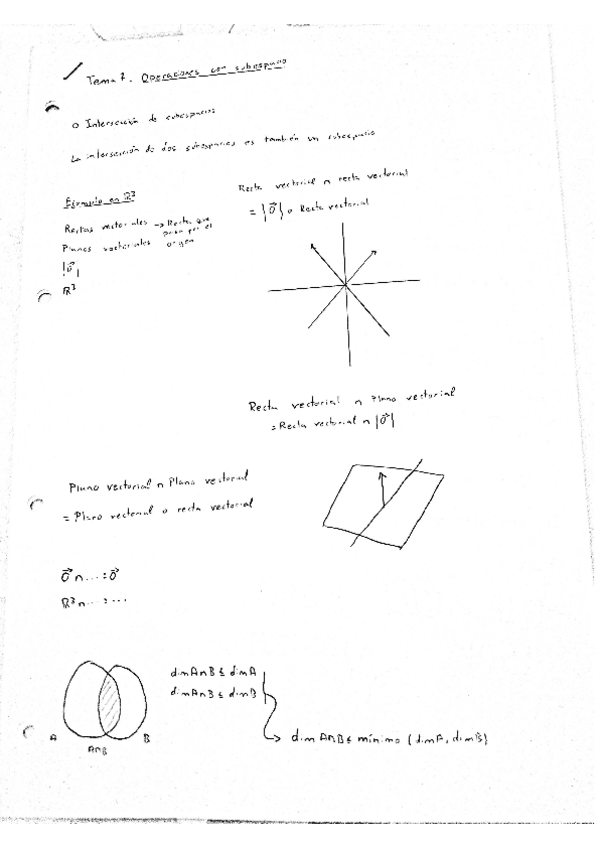 Tema 7. Operaciones con subespacio
o Intersección de subespacios
La intersección de dos subespacios es también un subespacio
Ejemplo en R³
Rectas vectoriales → Recta que pasa por el origen
Planos vectoriales
{0⃗}
R³
Recta vectorial ∩ recta vectorial
= {0⃗} o Recta vectorial
Recta vectorial ∩ Plano vectorial
= Recta vectorial ∩ {0⃗}
Plano vectorial ∩ Plano vectorial
= Plano vectorial o recta vectorial
0⃗ ∩ ... = 0⃗
R³ ∩ ... = ...
A
A∩B
B
dim A∩B ≤ dim A
dim A∩B ≤ dim B
→ dim A∩B ≤ mínimo (dim A, dim B)